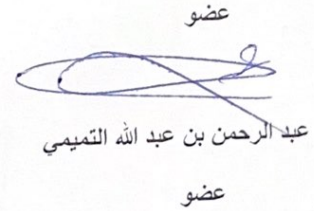 عضو
عبد الرحمن بن عبد الله التميمي
عضو